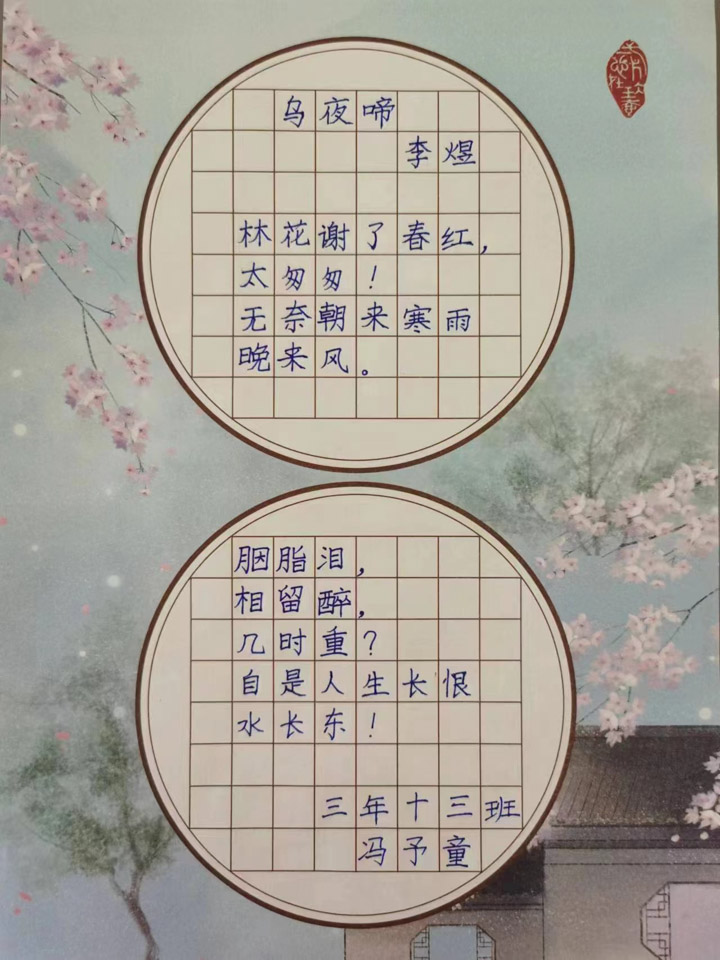 乌夜啼
李煜
林花谢了春红，
太匆匆！
无奈朝来寒雨
晚来风。
胭脂泪，
相留醉，
几时重？
自是人生长恨
水长东！
三年十三班
冯予童